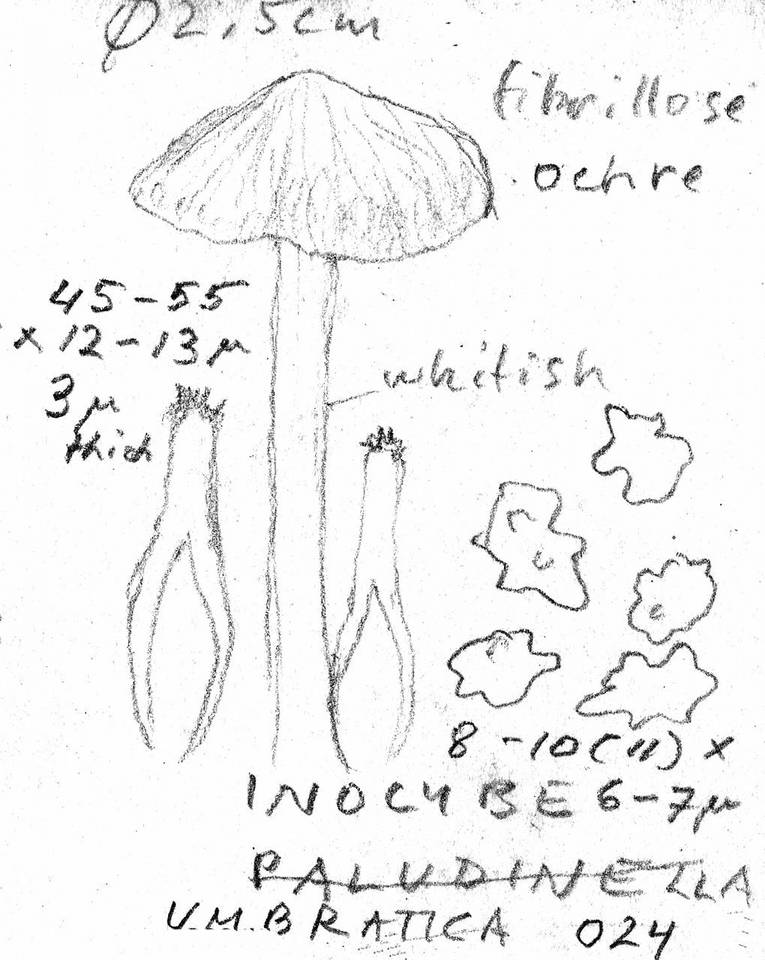 Ø 2,5cm
fibrillose
ochre
45-55
x 12-13µ
3µ
thich
whitish
8-10(11) x
6-7µ
INOCYBE
PALUDINELLA
UMBRATICA 024